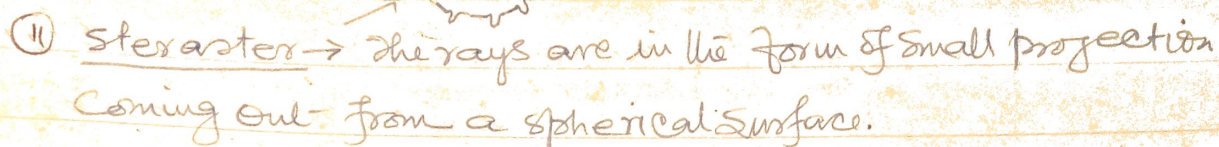 ⑪ Steraster → The rays are in the form of small projection
Coming out from a spherical surface.